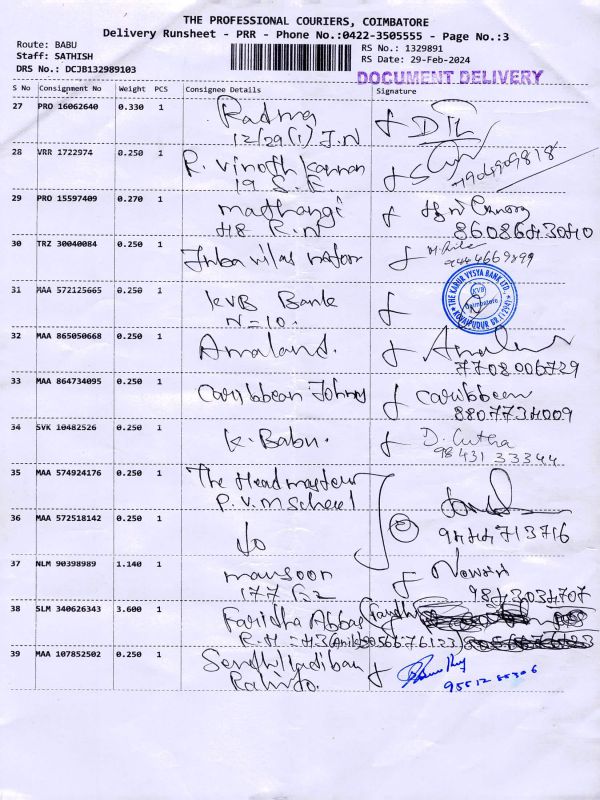 THE PROFESSIONAL COURIERS, COIMBATORE
Delivery Runsheet - PRR - Phone No.:0422-3505555 - Page No.:3
Route: BABU
Staff: SATHISH
DRS No.: DCJB132989103
RS No.: 1329891
RS Date: 29-Feb-2024
DOCUMENT DELIVERY
S No Consignment No Weight PCS Consignee Details Signature
27 PRO 16062640 0.330 1 Padma
12/29(1) J.N
28 VRR 1722974 0.250 1 R. Vinoth Kannan
19 S.F.
29 PRO 15597409 0.270 1 mathangi
48 R.N 8608643040
30 TRZ 30040084 0.250 1 Inba vilas
9444669899
31 MAA 572125665 0.250 1 KVB Bank
N=10.
THE KARUR VYSYA BANK LTD.
KVB
Coimbatore
32 MAA 865050668 0.250 1 Amaland.
7708006729
33 MAA 864734095 0.250 1 Caribbean Johny caribbean
8807734009
34 SVK 10482526 0.250 1 K. Babu.
98431 33344
35 MAA 574924176 0.250 1 The Headmaster
P.V.M School
36 MAA 572518142 0.250 1 9444713716
37 NLM 90398989 1.140 1 mansoor
177 9843034707
38 SLM 340626343 3.600 1 Faridha Abbas
R.N = 43 9056676123
39 MAA 107852502 0.250 1